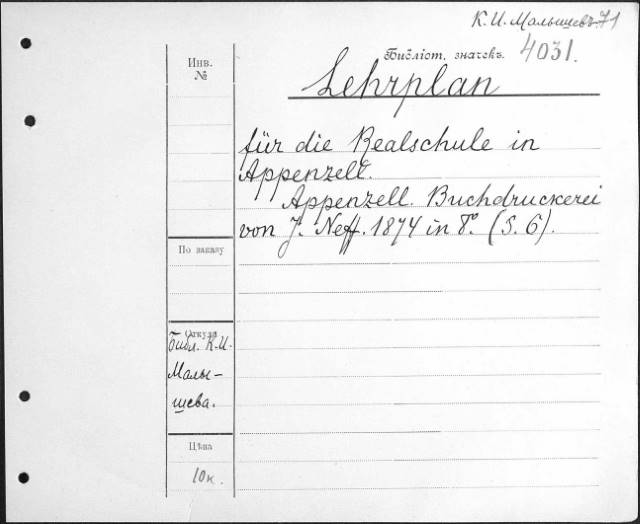 К. И. Малышевъ 71
Библіот. значекъ. 4031.
Инв.
№
Lehrplan
für die Realschule in
Appenzell.
Appenzell. Buchdruckerei
von J. Neff. 1874 in 8º. (S. 6).
По заказу
Откуда
Библ. К. И.
Малы-
шева.
Цѣна
10 к.